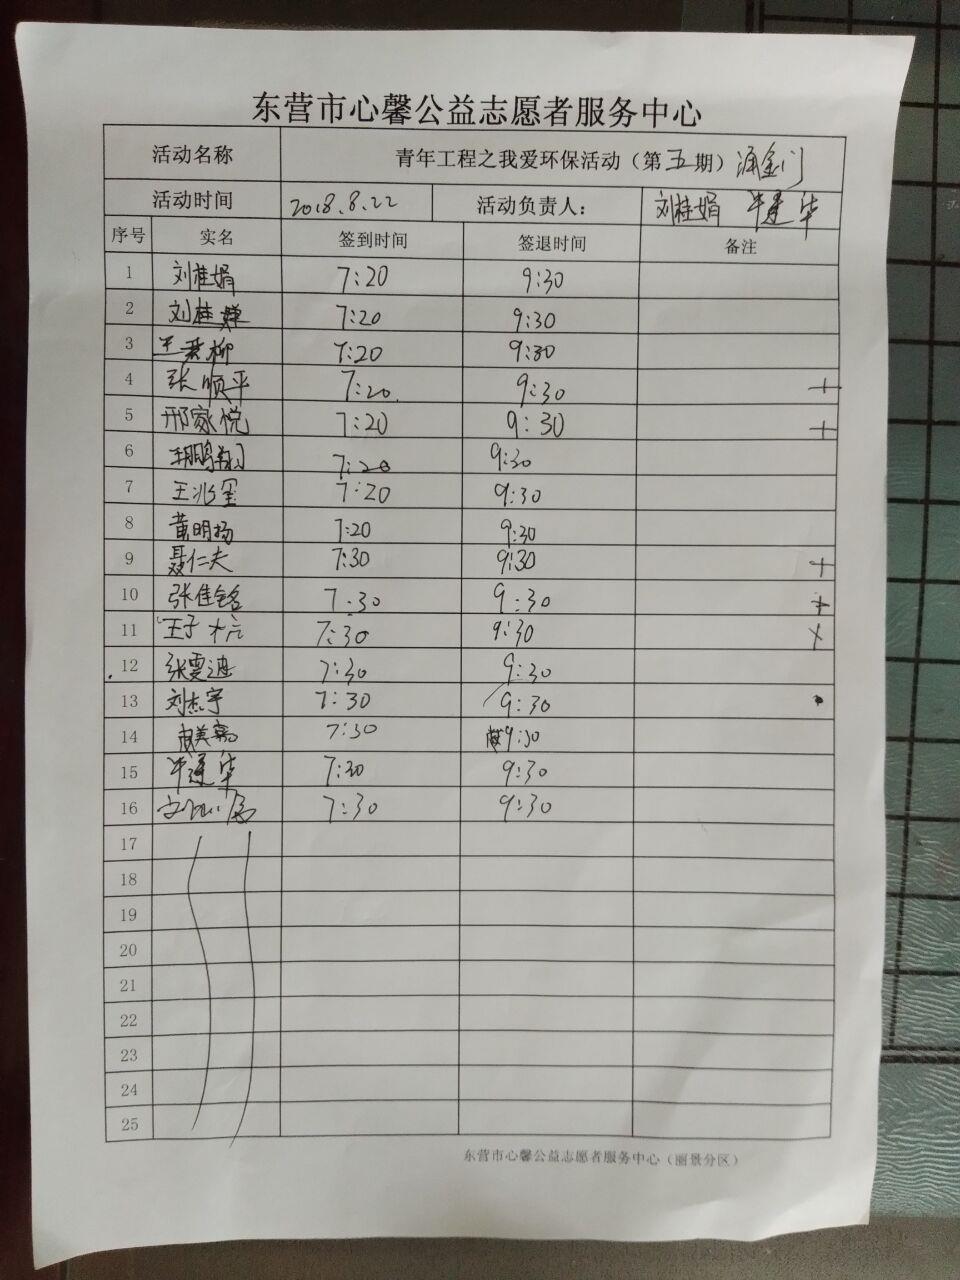 东营市心馨公益志愿者服务中心
活动名称 青年工程之我爱环保活动（第五期）涌金门
活动时间 2018.8.22 活动负责人： 刘桂娟 毕建华
序号 实名 签到时间 签退时间 备注
1 刘桂娟 7:20 9:30
2 刘桂婵 7:20 9:30
3 7:20 9:30
4 张顺平 7:20. 9:30 +
5 邢家悦 7:20 9:30 +
6 7:20 9:30
7 王兆玺 7:20 9:30
8 黄明扬 7:20 9:30
9 聂仁夫 7:30 9:30 +
10 张佳铭 7:30 9:30 +
11 王子 7:30 9:30 x
12 张雯迪 7:30 9:30
13 刘杰宇 7:30 9:30
14 7:30 9:30
15 毕建华 7:30 9:30
16 7:30 9:30
17
18
19
20
21
22
23
24
25
东营市心馨公益志愿者服务中心（丽景分区）